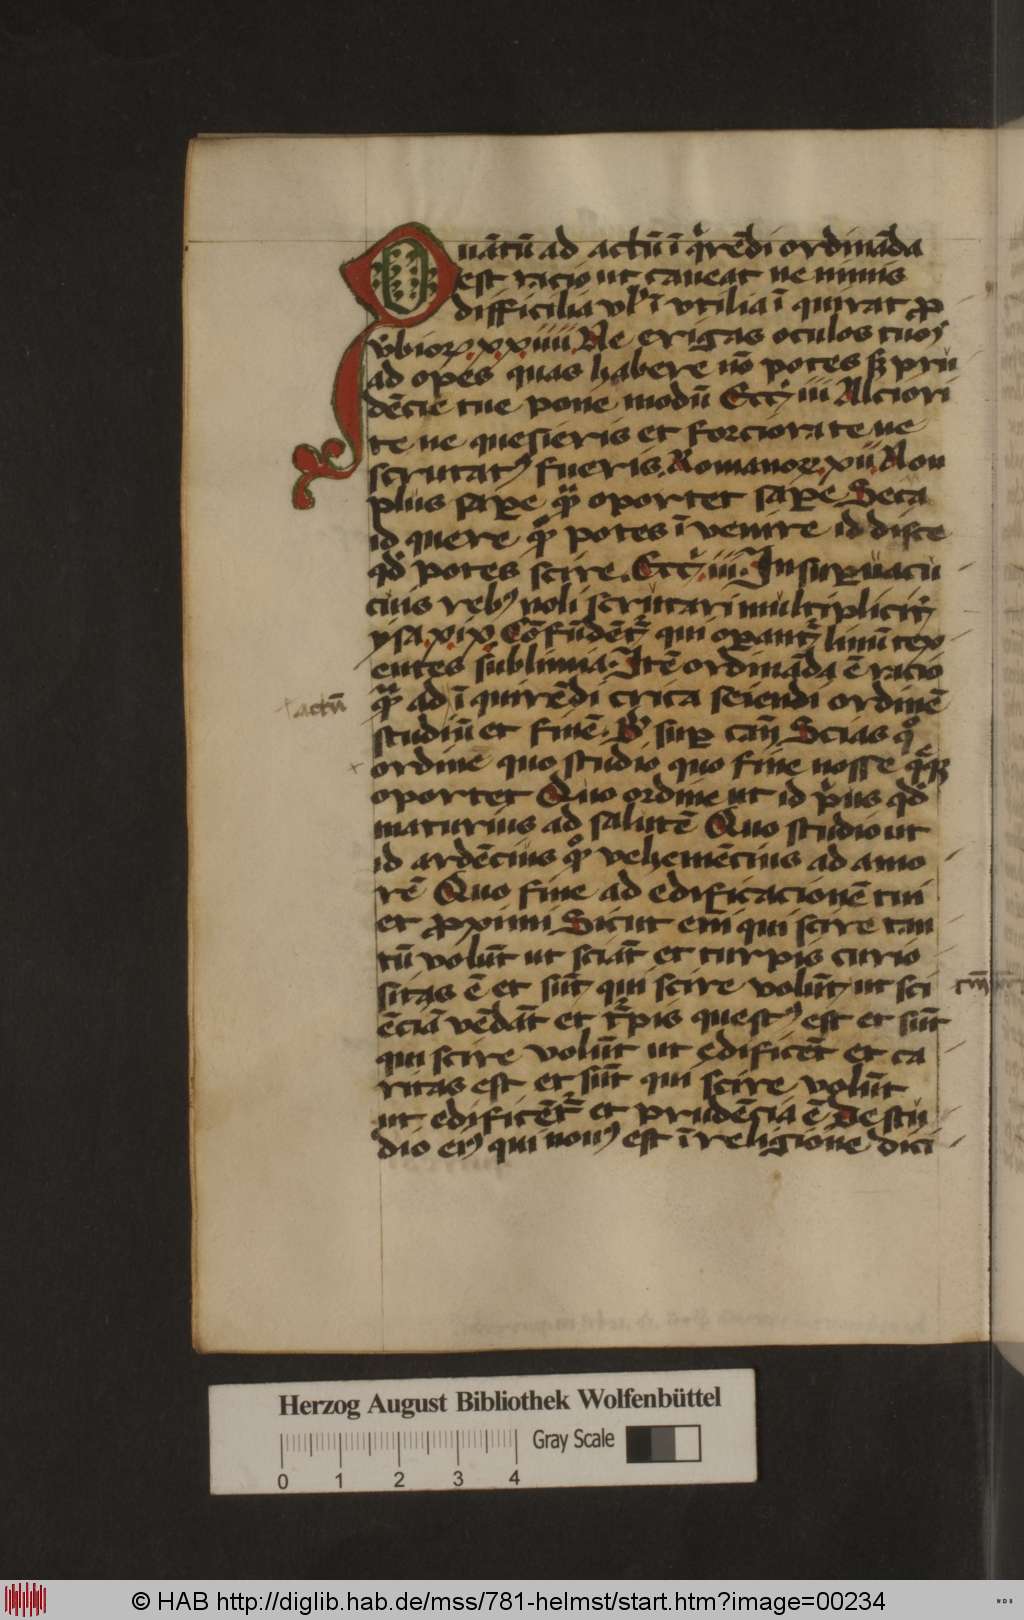 Quātū ad actū ī q̄rēdi ordināda
est racio ut caveat ne nimis
difficilia vl' ī vtilia ī quirat ꝓ
v̄bioꝝ xxiiii Ne erigas oculos tuos
ad opes quas habere nō potes sꝫ pru
dēcie tue pone modū Ecc̄ iii Alciori
te ne quesieris et forciora te ne
scrutatꝰ fueris. Romanoꝝ xii Non
plus saꝑe q̄ oportet saꝑe Seca
id quere qͦ potes ī venire id disce
qd̄ potes scire. Ecc̄ iii. In suꝑvacu
cuis rebꝰ noli scrutari multiplicit̄
ysa xix Cōfūdēt̄ qui oꝑant̄ linū tex
entes sublimia. Itē ordināda ē racio
q̄ ad ī quirēdi circa sciendi ordinē
actū
studiū et finē. B' suꝑ cān̄ Scias qͦ
ordine quo studio quo fine nosse
oportet Quo ordine ut id p̄us qd̄
maturius ad salutē Quo studio ut
id ardēcius qͦ vehemēcius ad amo
rē Quo fine ad edificacionē tui
et ꝓximi Sicut em̄ qui scire tan
tū volūt ut sciāt et turpis curio
sitas ē et sūt qui scire volūt ut sci
ēciā vēdāt et t̄pis questꝰ est et sūt
qui scire volūt ut edificēt et ca
ritas est et sūt qui scire volūt
ut edificēt̄ et prudēcia ē De stu
dio eiꝰ qui nouꝰ est ī religione dici
Herzog August Bibliothek Wolfenbüttel
Gray Scale
0 1 2 3 4
© HAB http://diglib.hab.de/mss/781-helmst/start.htm?image=00234